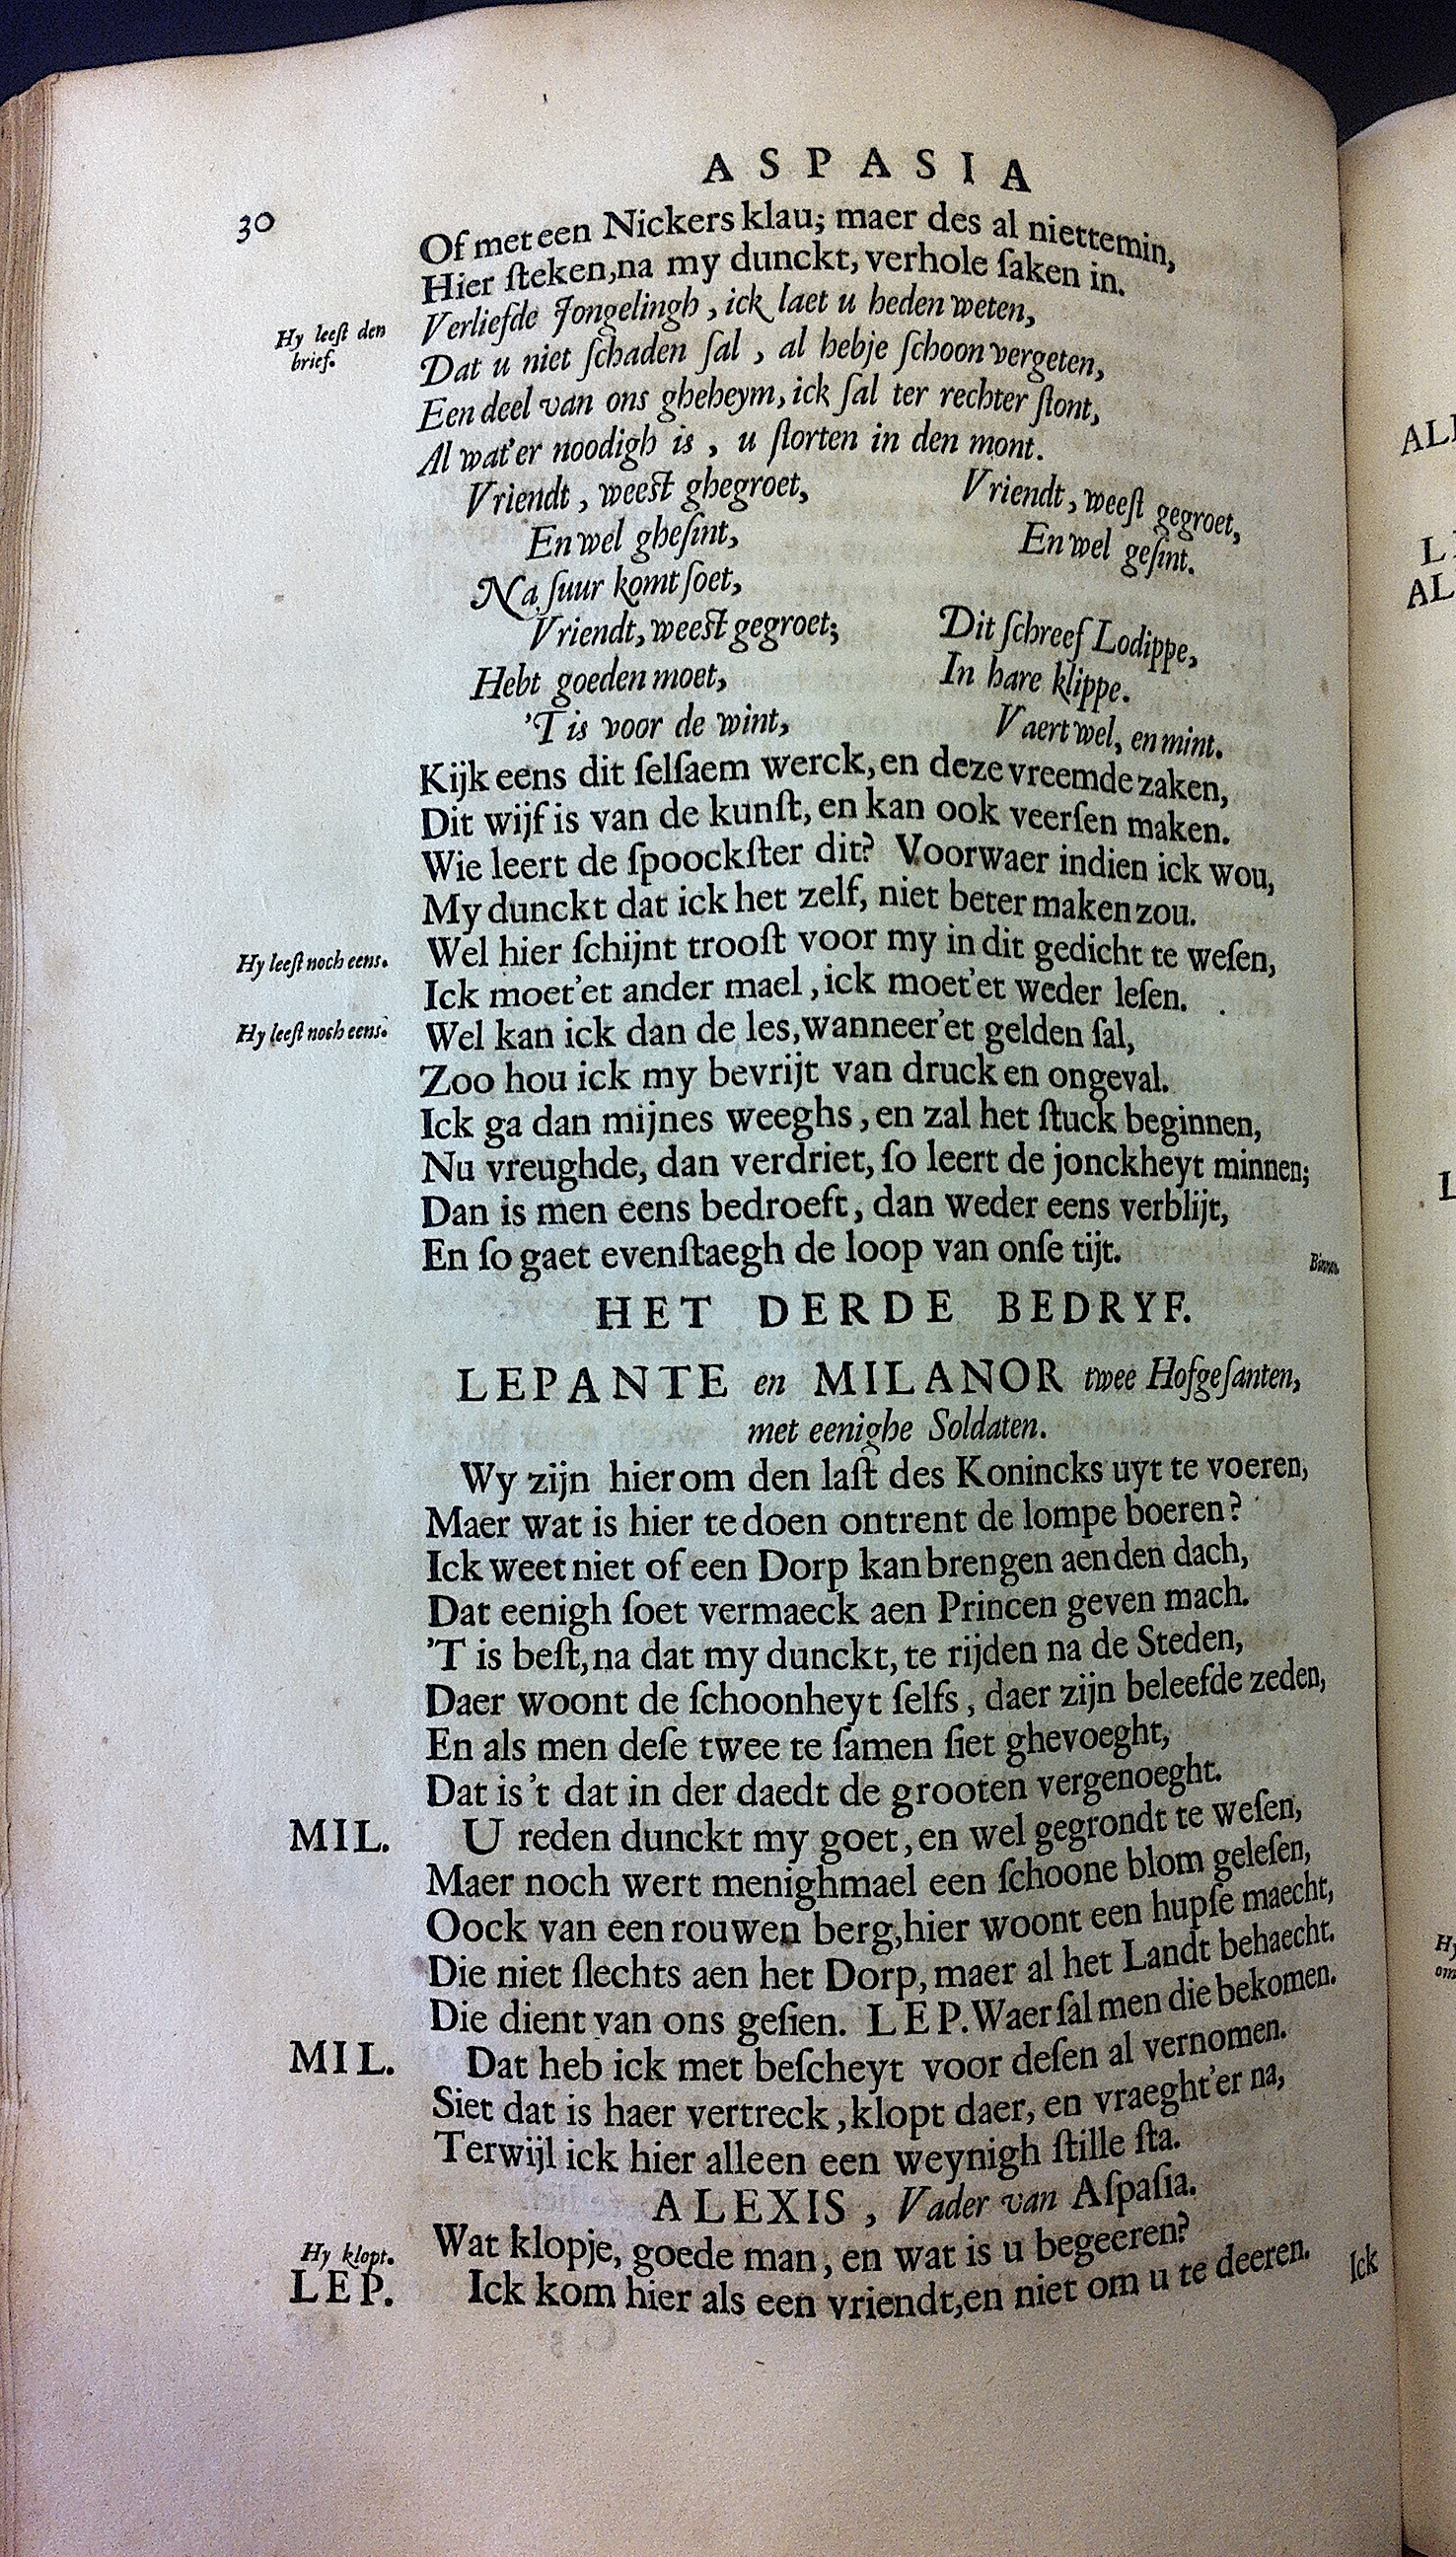 ASPASIA
30
Of met een Nickers klau; maer des al niettemin,
Hier ſteken, na my dunckt, verhole ſaken in.
Hy leeſt den
brief.
Verliefde Jongelingh, ick laet u heden weten,
Dat u niet ſchaden ſal, al hebje ſchoon vergeten,
Een deel van ons gheheym, ick ſal ter rechter ſtont,
Al wat'er noodigh is, u ſtorten in den mont.
Vriendt, weeſt ghegroet,
En wel gheſint,
Na ſuur komt ſoet,
Vriendt, weeſt gegroet;
Hebt goeden moet,
'T is voor de wint,
Vriendt, weeſt gegroet,
En wel geſint.
Dit ſchreef Lodippe,
In hare klippe.
Vaert wel, en mint.
Kijk eens dit ſelſaem werck, en deze vreemde zaken,
Dit wijf is van de kunſt, en kan ook veerſen maken.
Wie leert de ſpoockſter dit? Voorwaer indien ick wou,
My dunckt dat ick het zelf, niet beter maken zou.
Hy leeſt noch eens.
Wel hier ſchijnt trooſt voor my in dit gedicht te weſen,
Ick moet'et ander mael, ick moet'et weder leſen.
Hy leeſt noch eens.
Wel kan ick dan de les, wanneer'et gelden ſal,
Zoo hou ick my bevrijt van druck en ongeval.
Ick ga dan mijnes weeghs, en zal het ſtuck beginnen,
Nu vreughde, dan verdriet, ſo leert de jonckheyt minnen;
Dan is men eens bedroeft, dan weder eens verblijt,
En ſo gaet evenſtaegh de loop van onſe tijt.
Binnen.
HET DERDE BEDRYF.
LEPANTE en MILANOR twee Hofgeſanten,
met eenighe Soldaten.
Wy zijn hier om den laſt des Konincks uyt te voeren,
Maer wat is hier te doen ontrent de lompe boeren?
Ick weet niet of een Dorp kan brengen aen den dach,
Dat eenigh ſoet vermaeck aen Princen geven mach.
'T is beſt, na dat my dunckt, te rijden na de Steden,
Daer woont de ſchoonheyt ſelfs, daer zijn beleefde zeden,
En als men deſe twee te ſamen ſiet ghevoeght,
Dat is 't dat in der daedt de grooten vergenoeght.
MIL. U reden dunckt my goet, en wel gegrondt te weſen,
Maer noch wert menighmael een ſchoone blom geleſen,
Oock van een rouwen berg, hier woont een hupſe maecht,
Die niet ſlechts aen het Dorp, maer al het Landt behaecht.
Die dient van ons geſien. LEP. Waer ſal men die bekomen.
MIL. Dat heb ick met beſcheyt voor deſen al vernomen.
Siet dat is haer vertreck, klopt daer, en vraeght'er na,
Terwijl ick hier alleen een weynigh ſtille ſta.
ALEXIS, Vader van Aſpaſia.
Wat klopje, goede man, en wat is u begeeren?
Hy klopt.
LEP. Ick kom hier als een vriendt, en niet om u te deeren.
Ick
ALE
AL
L
Hy